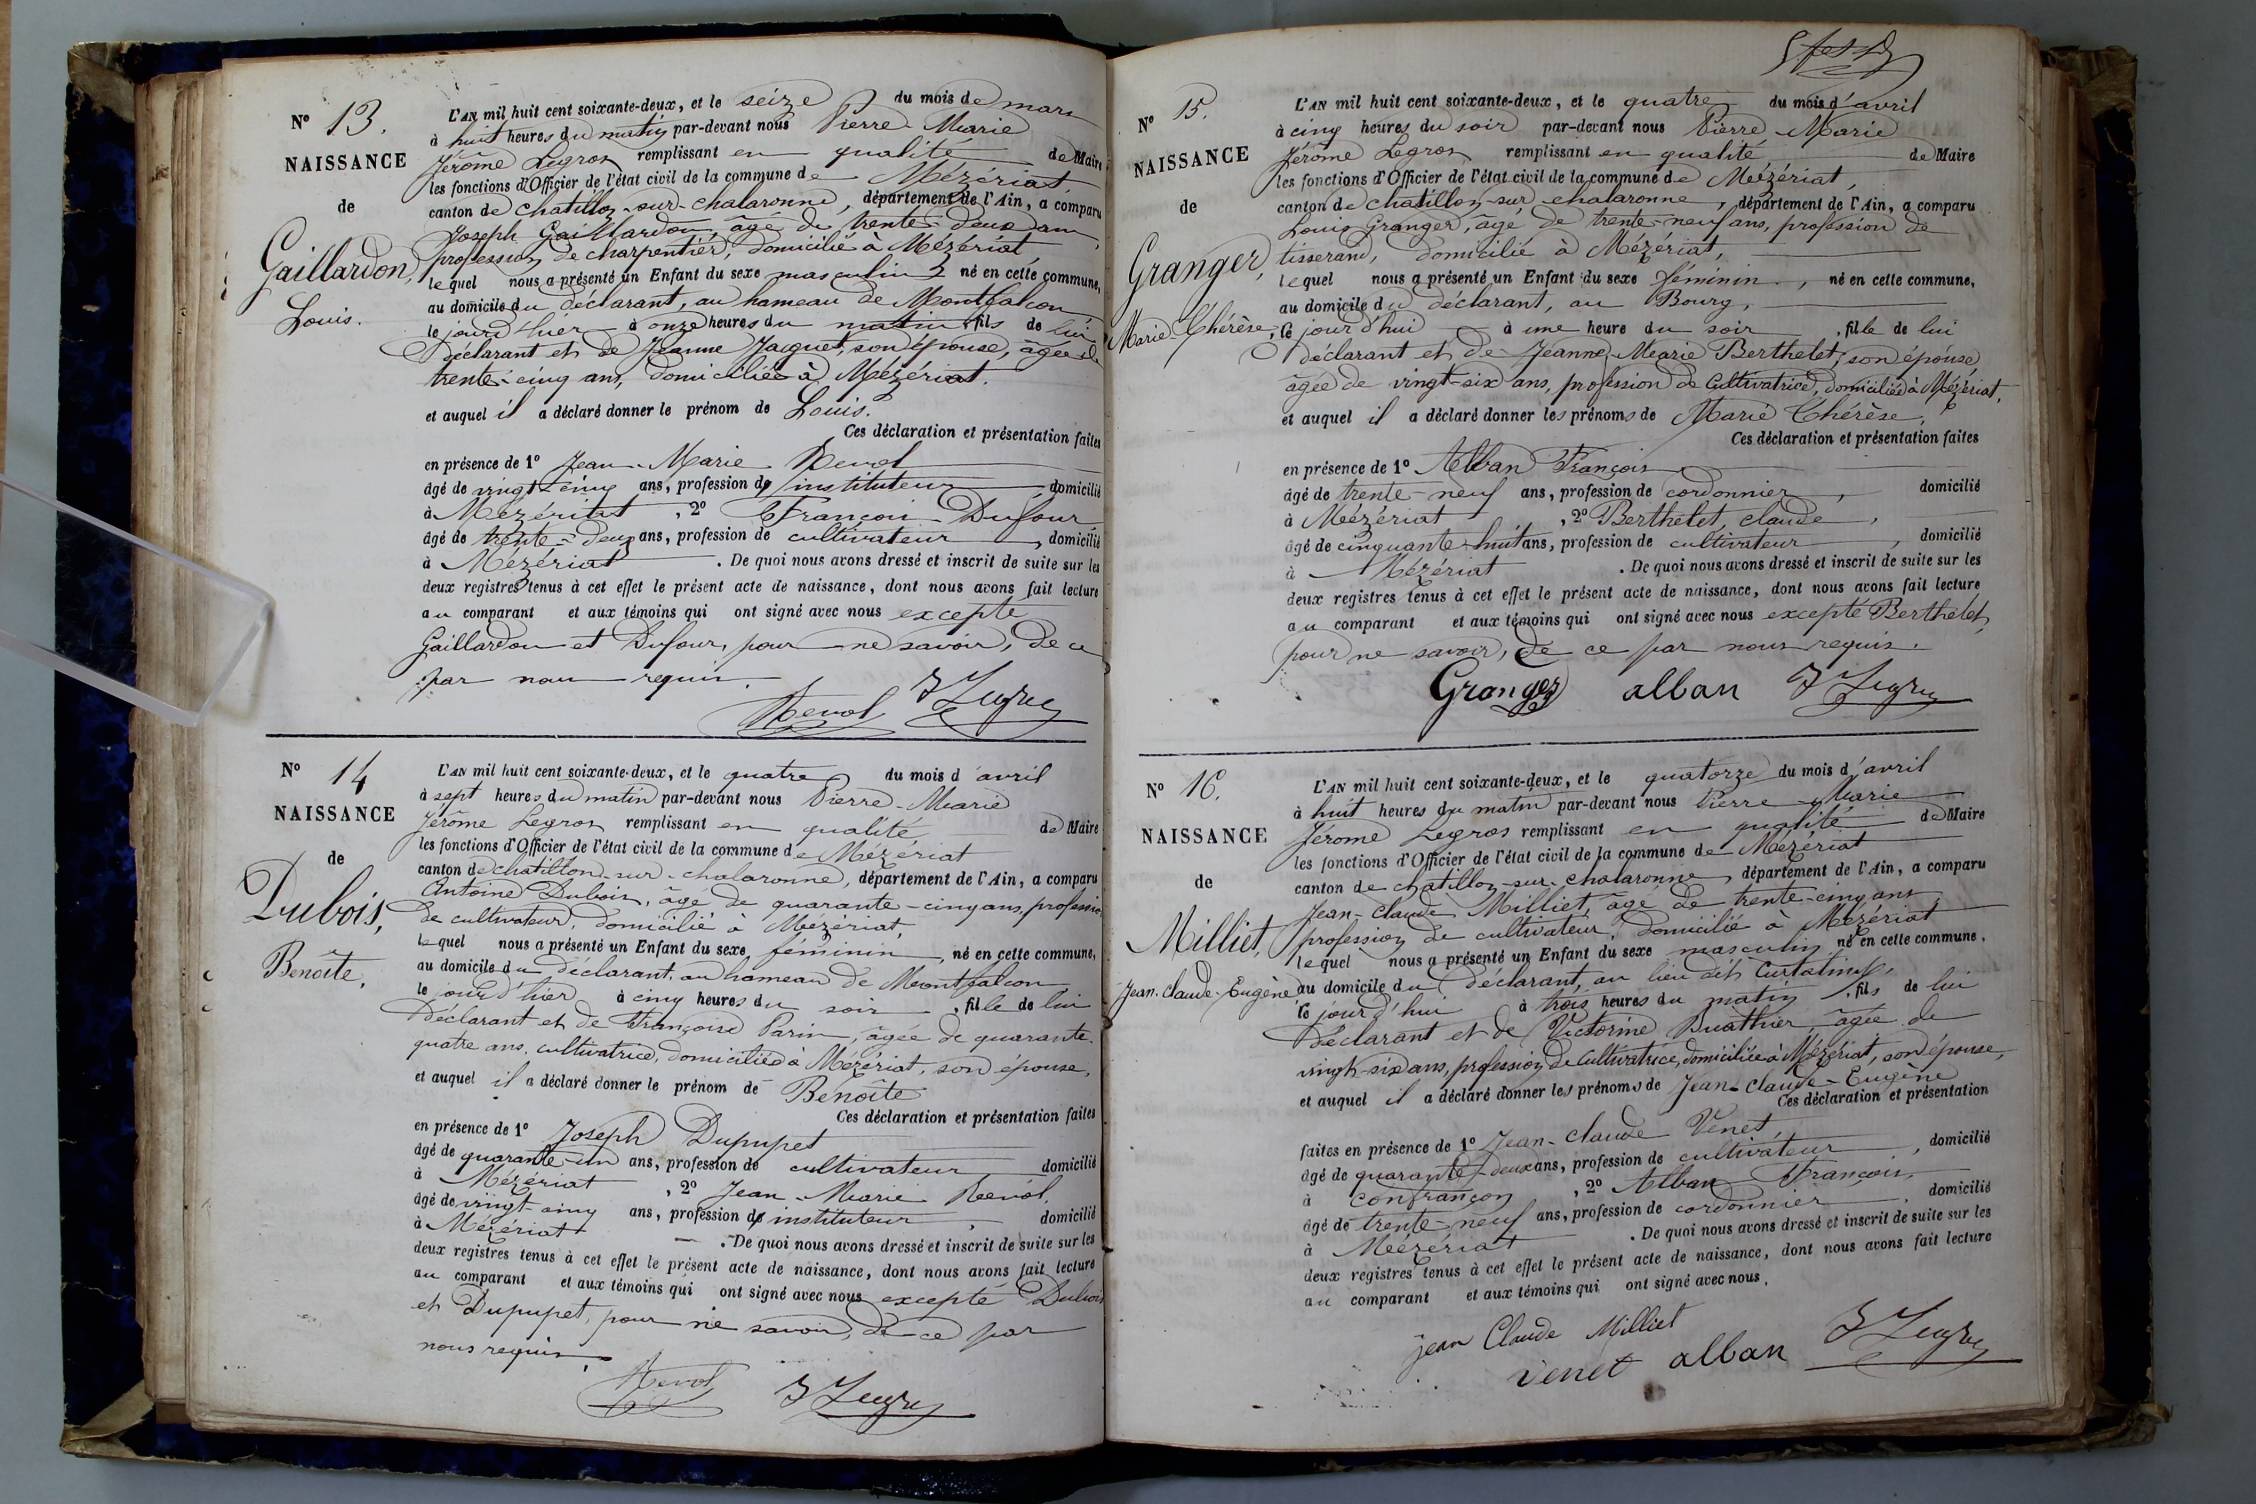 N° 13.
NAISSANCE
de
Gaillardon,
Louis.
L'AN mil huit cent soixante-deux, et le seize du mois de mars
à huit heures du matin par-devant nous Pierre-Marie
Jérôme Legros remplissant en qualité de Maire
les fonctions d'Officier de l'état civil de la commune de Mézériat,
canton de chatillon-sur-chalaronne, département de l'Ain, a comparu
Joseph Gaillardon, âgé de trente-deux ans,
profession de charpentier, domicilié à Mézériat
lequel nous a présenté un Enfant du sexe masculin, né en cette commune,
au domicile du déclarant, au hameau de Montfalcon
le jour d'hier à onze heures du matin, fils de lui
déclarant et de Jeanne Jacquet, son épouse, âgée de
trente-cinq ans, domiciliée à Mézériat.
et auquel il a déclaré donner le prénom de Louis.
Ces déclaration et présentation faites
en présence de 1° Jean-Marie Revol
âgé de vingt-cinq ans, profession d' instituteur domicilié
à Mézériat, 2° François Dufour
âgé de trente-deux ans, profession de cultivateur, domicilié
à Mézériat. De quoi nous avons dressé et inscrit de suite sur les
deux registres tenus à cet effet le présent acte de naissance, dont nous avons fait lecture
au comparant et aux témoins qui ont signé avec nous excepté
Gaillardon et Dufour, pour ne savoir, de ce
par nous requis.
Revol J Legros
N° 14
NAISSANCE
de
Dubois,
Benoîte.
L'AN mil huit cent soixante-deux, et le quatre du mois d'avril
à sept heures du matin par-devant nous Pierre-Marie
Jérôme Legros remplissant en qualité de Maire
les fonctions d'Officier de l'état civil de la commune de Mézériat
canton de chatillon-sur-chalaronne, département de l'Ain, a comparu
Antoine Dubois, âgé de quarante-cinq ans, profession
de cultivateur, domicilié à Mézériat,
lequel nous a présenté un Enfant du sexe féminin, né en cette commune,
au domicile du déclarant, au hameau de Montfalcon
le jour d'hier à cinq heures du soir, fille de lui
déclarant et de Françoise Parin, âgée de quarante-
quatre ans, cultivatrice, domiciliée à Mézériat, son épouse,
et auquel il a déclaré donner le prénom de Benoîte
Ces déclaration et présentation faites
en présence de 1° Joseph Dupupet
âgé de quarante-un ans, profession de cultivateur domicilié
à Mézériat, 2° Jean-Marie Revol,
âgé de vingt-cinq ans, profession d' instituteur, domicilié
à Mézériat. De quoi nous avons dressé et inscrit de suite sur les
deux registres tenus à cet effet le présent acte de naissance, dont nous avons fait lecture
au comparant et aux témoins qui ont signé avec nous excepté Dubois
et Dupupet, pour ne savoir, de ce par
nous requis.
Revol J Legros
N° 15.
NAISSANCE
de
Granger,
Marie-Thérèse,
L'AN mil huit cent soixante-deux, et le quatre du mois d'avril
à cinq heures du soir par-devant nous Pierre-Marie
Jérôme Legros remplissant en qualité de Maire
les fonctions d'Officier de l'état civil de la commune de Mézériat,
canton de chatillon-sur-chalaronne, département de l'Ain, a comparu
Louis Granger, âgé de trente-neuf ans, profession de
tisserand, domicilié à Mézériat,
lequel nous a présenté un Enfant du sexe féminin, né en cette commune,
au domicile du déclarant, au Bourg,
le jour d'hui à une heure du soir, fille de lui
déclarant et de Jeanne-Marie Berthelet, son épouse,
âgée de vingt-six ans, profession de cultivatrice, domiciliée à Mézériat,
et auquel il a déclaré donner les prénoms de Marie Thérèse,
Ces déclaration et présentation faites
en présence de 1° Alban François
âgé de trente-neuf ans, profession de cordonnier, domicilié
à Mézériat, 2° Berthelet, claude,
âgé de cinquante-huit ans, profession de cultivateur, domicilié
à Mézériat. De quoi nous avons dressé et inscrit de suite sur les
deux registres tenus à cet effet le présent acte de naissance, dont nous avons fait lecture
au comparant et aux témoins qui ont signé avec nous excepté Berthelet,
pour ne savoir, de ce par nous requis.
Granger alban J Legros
N° 16.
NAISSANCE
de
Milliet,
Jean-claude-Eugène
L'AN mil huit cent soixante-deux, et le quatorze du mois d'avril
à huit heures du matin par-devant nous Pierre-Marie
Jérome Legros remplissant en qualité de Maire
les fonctions d'Officier de l'état civil de la commune de Mézériat
canton de chatillon-sur-chalaronne, département de l'Ain, a comparu
Jean-claude Milliet âgé de trente-cinq ans,
profession de cultivateur, domicilié à Mézériat
lequel nous a présenté un Enfant du sexe masculin né en cette commune,
au domicile du déclarant, au lieu dit
le jour d'hui à trois heures du matin, fils de lui
déclarant et de Victorine Buathier âgée de
vingt-six ans, profession de cultivatrice, domiciliée à Mézériat, son épouse,
et auquel il a déclaré donner les prénoms de Jean-claude-Eugène
Ces déclaration et présentation
faites en présence de 1° Jean-claude Venet,
âgé de quarante-deux ans, profession de cultivateur, domicilié
à confrançon, 2° Alban François,
âgé de trente-neuf ans, profession de cordonnier, domicilié
à Mézériat. De quoi nous avons dressé et inscrit de suite sur les
deux registres tenus à cet effet le présent acte de naissance, dont nous avons fait lecture
au comparant et aux témoins qui ont signé avec nous.
jean Claude Milliet
venet alban J Legros